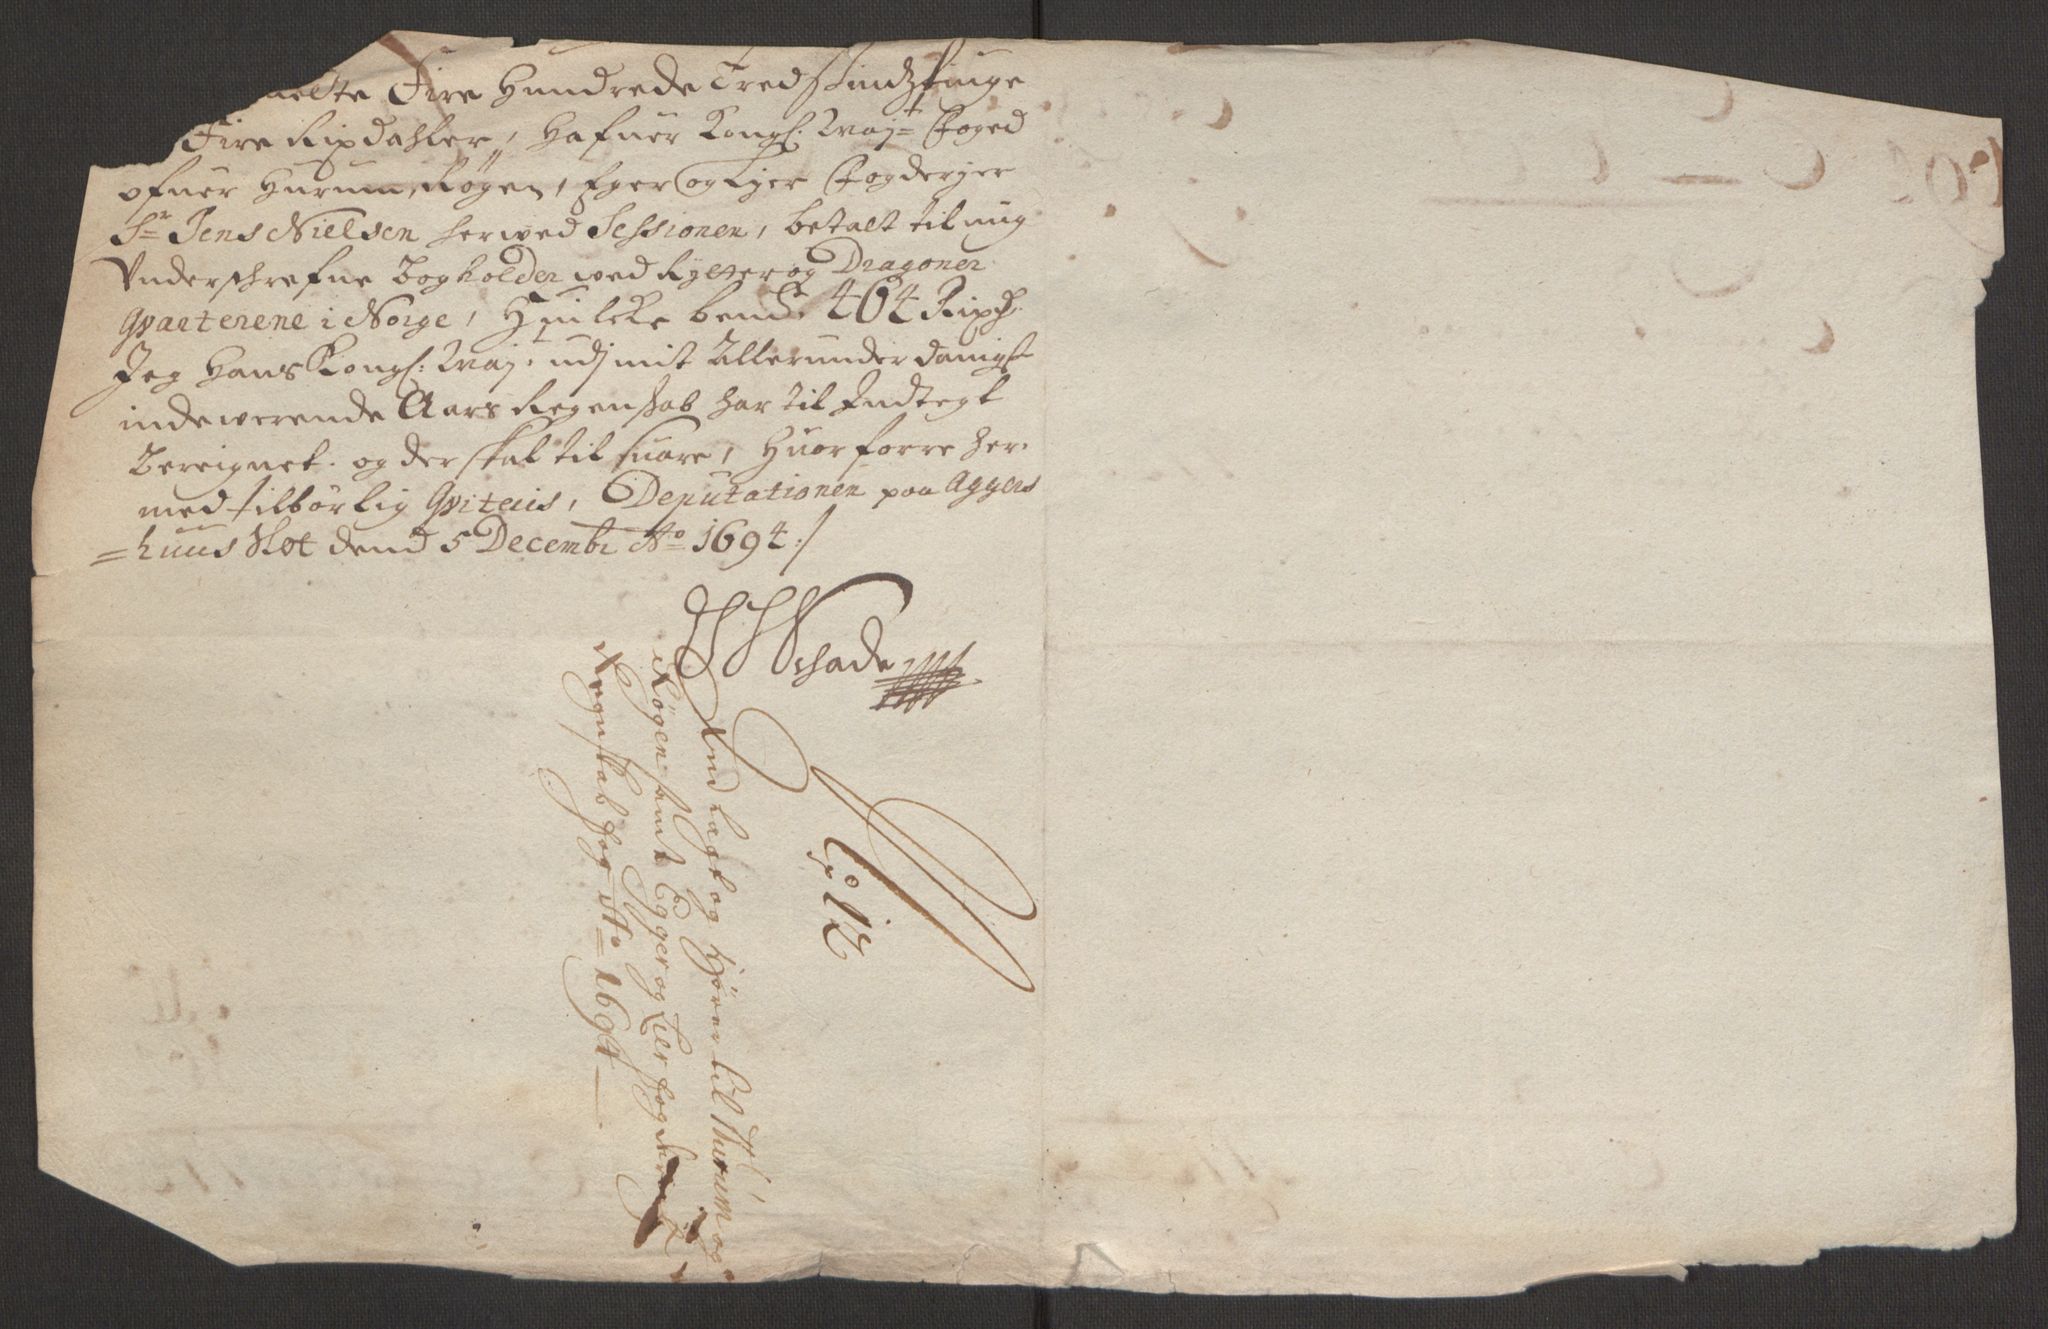 melte Fire Hundrede Tredsindztiuge
Fire Rixdahler, Hafuer Kongl: Maj:t Foged
ofuer Hurum, Røgen, Eger og Lyer Fogderjer
Sr Jens Nielsen herwed Sessionen, betalt til mig
Underschrefne Bogholder wed Rytter og Dragoner
Qvarterene i Norge, Huilcke bemte 464 Rixd.
Jeg Hans Kongl: Maj:t udj mit Allerunderdanigst
indewerende Aars Regenskab har til Indtegt
Bereignet. og der skal til suare, Huorforre her-
med tilbørlig Qviteris, Deputationen paa Aggers
=huus Slot dend 5 Decembr Ao 1694 ./
Schade
No 12
Ind lagt og Hører til Hurum og
Røgen samt Egger og Lier fogderiers
Regenskab for Ao 1694